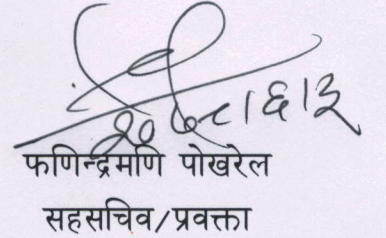 २०७८।६।३
फणिन्द्रमणि पोखरेल
सहसचिव/प्रवक्ता